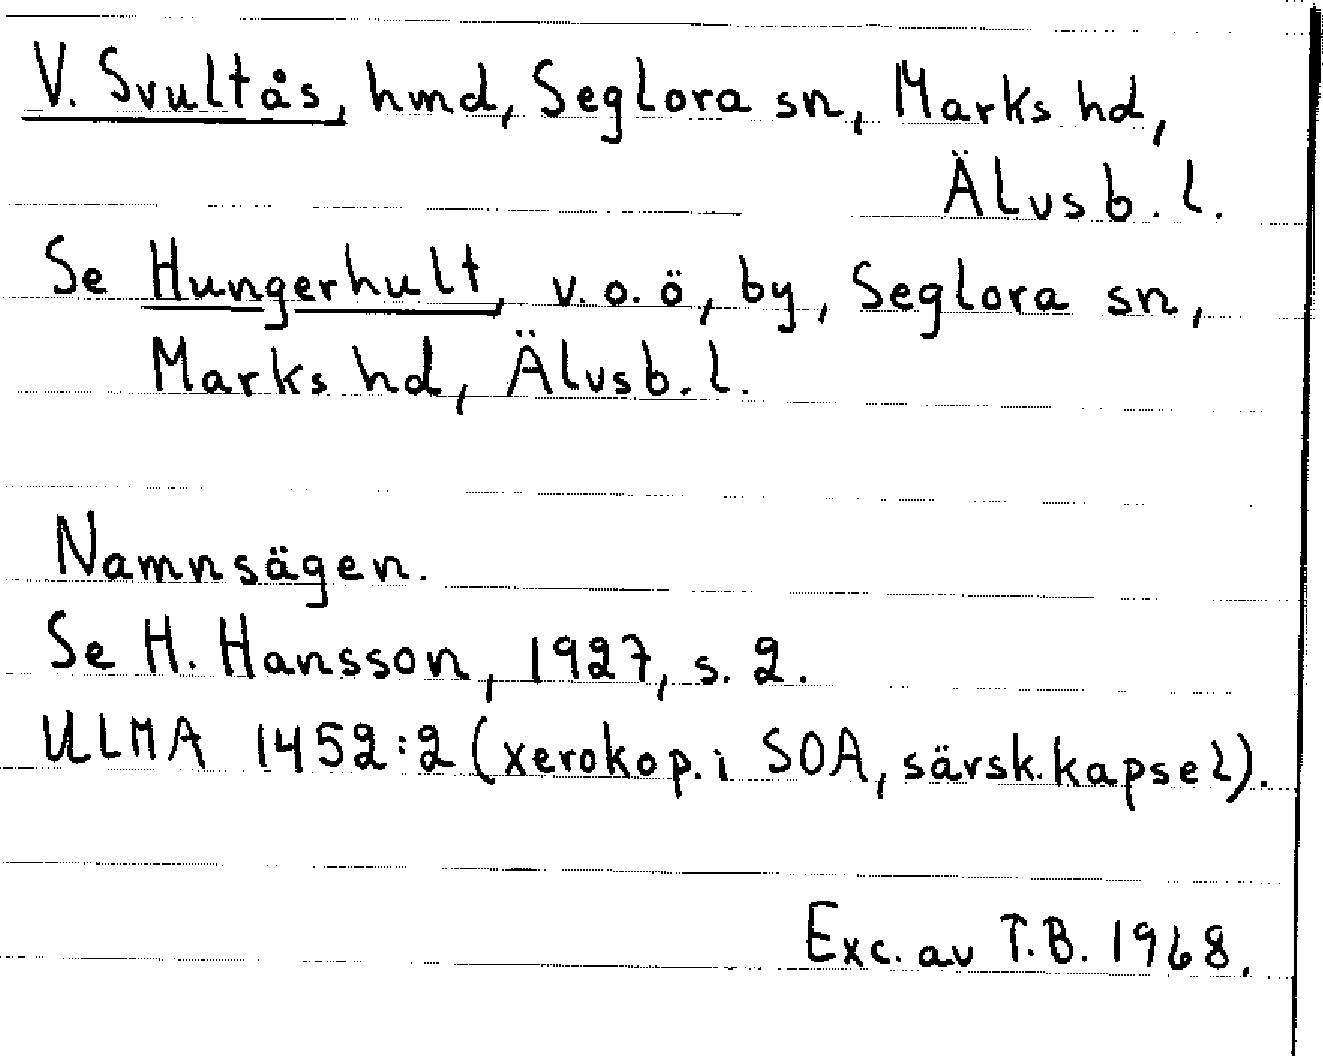 V. Svultås, hmd, Seglora sn, Marks hd,
Älvsb. l.
Se Hungerhult, v. o. ö, by, Seglora sn,
Marks hd, Älvsb. l.
Namnsägen.
Se H. Hansson, 1927, s. 2.
ULMA 1452:2 (xerokop. i SOA, särsk. kapsel).
Exc. av T.B. 1968.